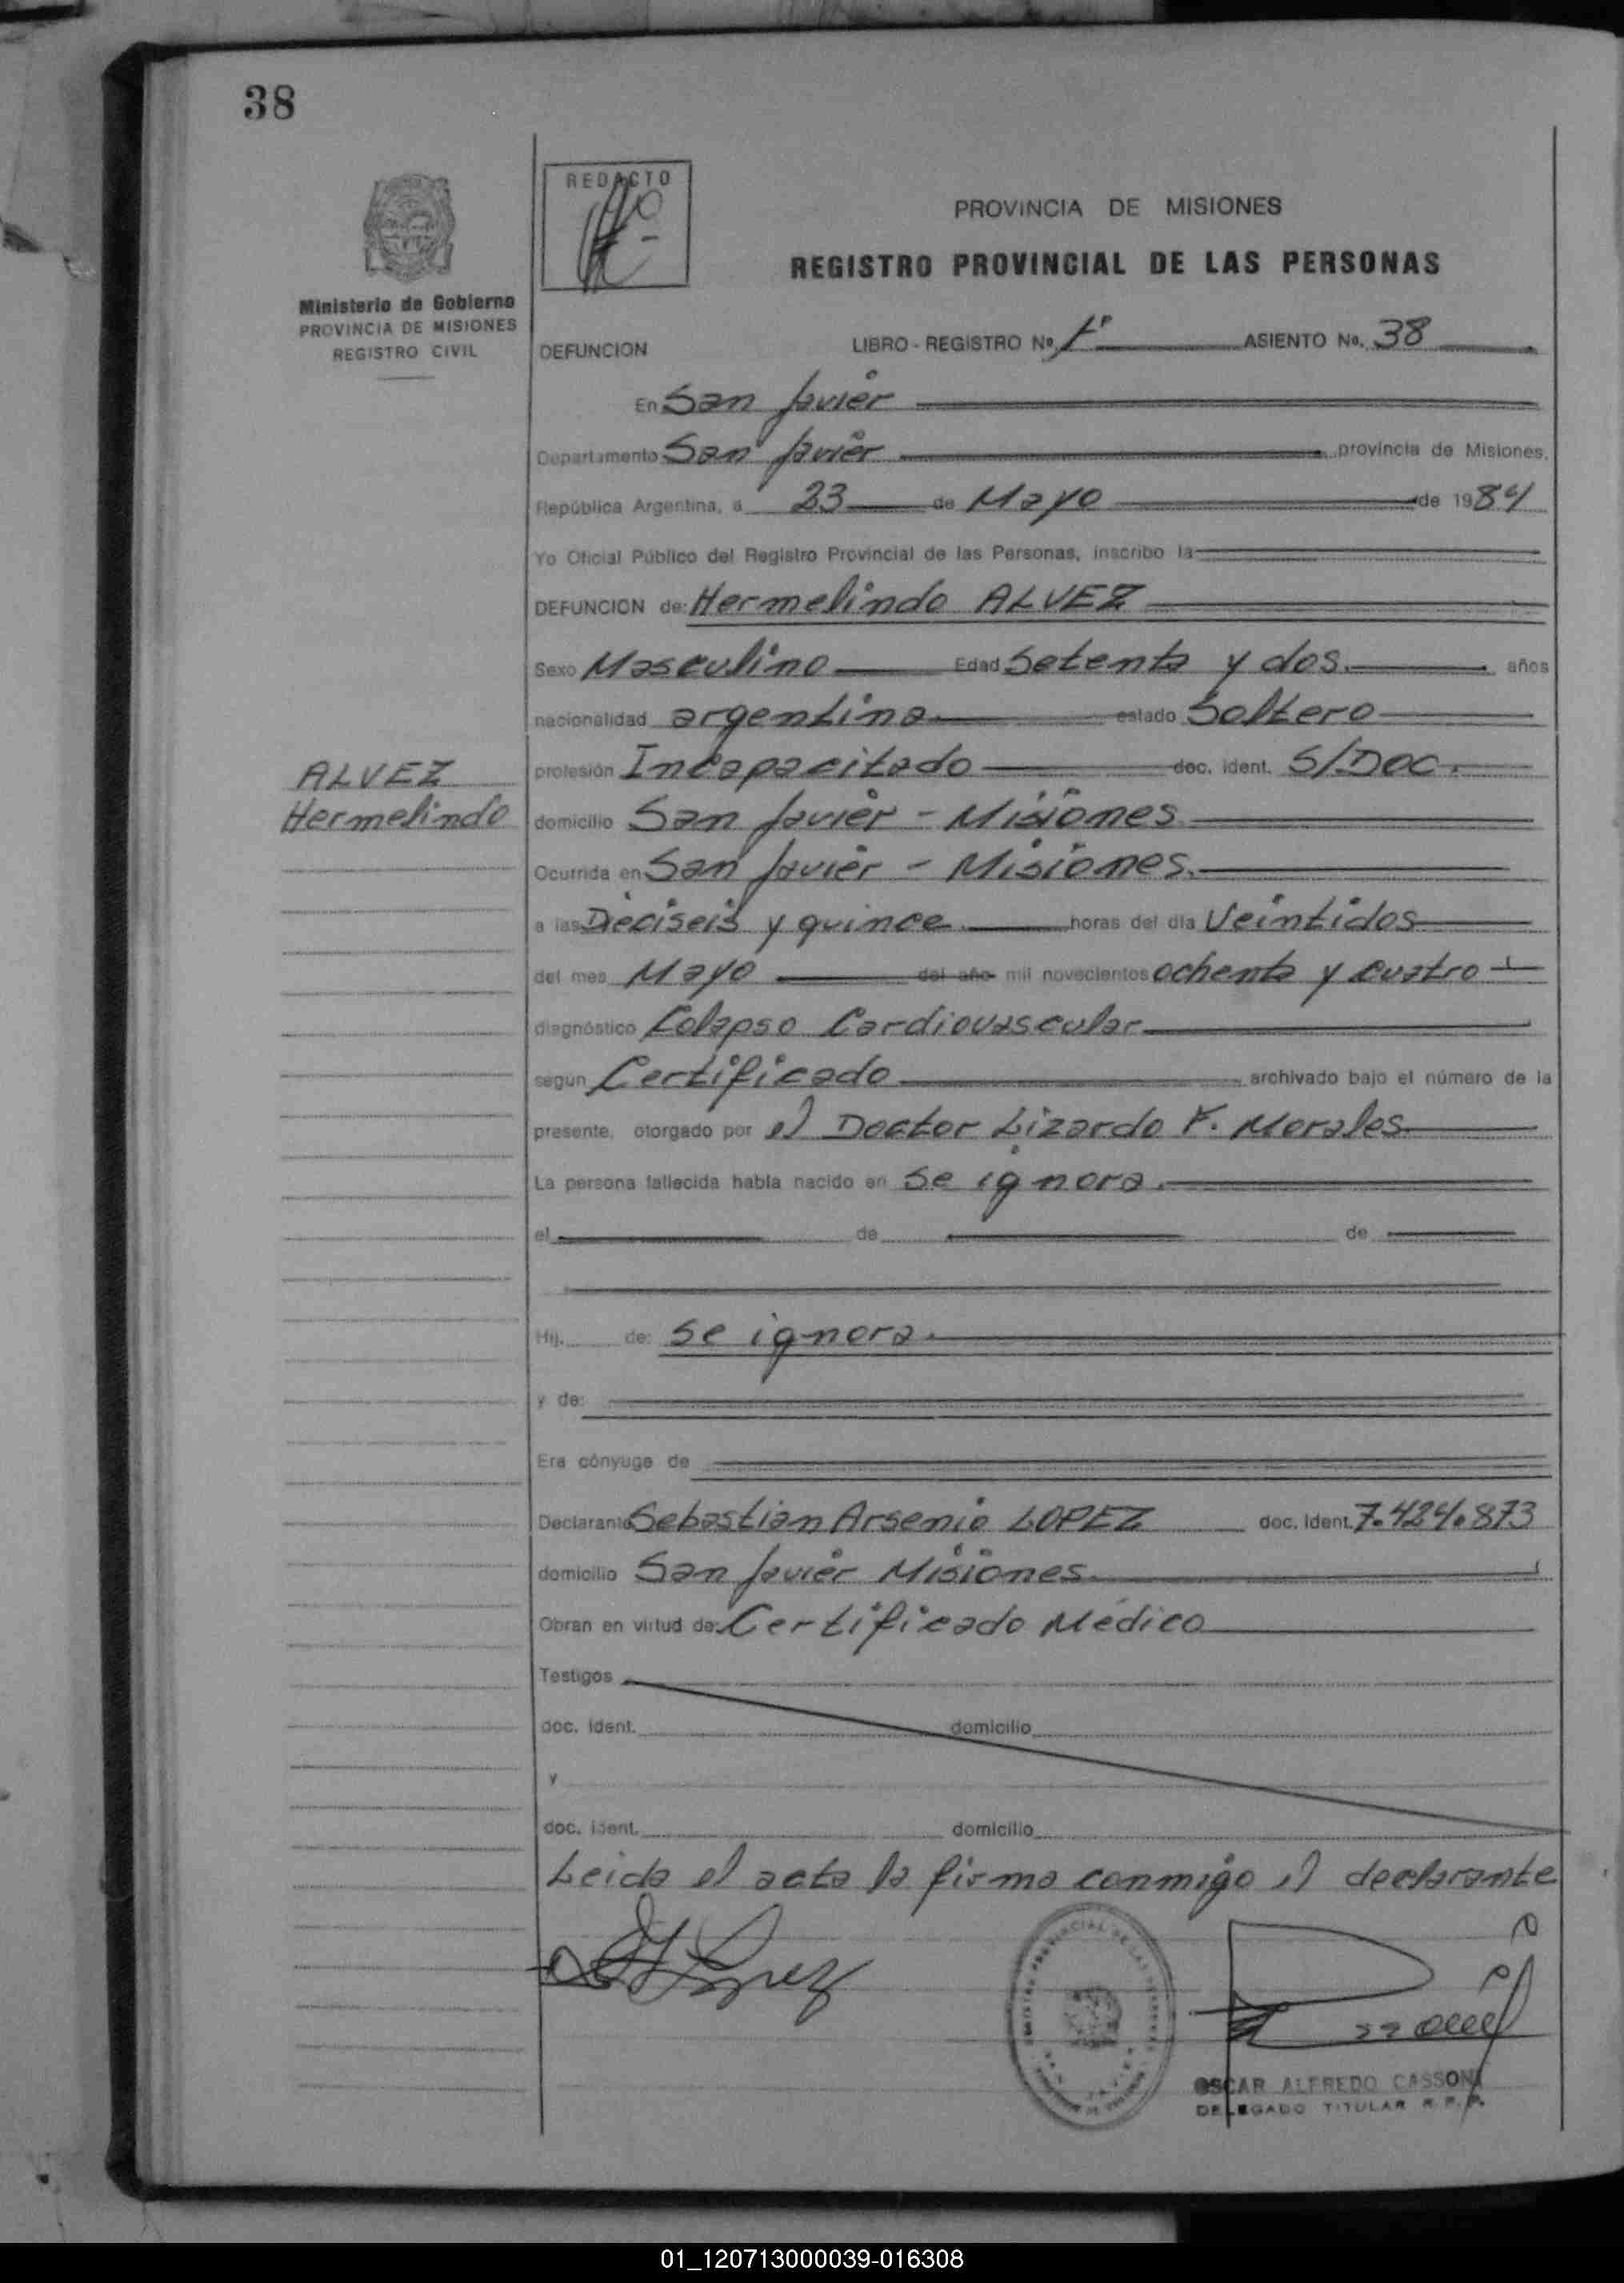 38
REDACTO
PROVINCIA DE MISIONES
REGISTRO PROVINCIAL DE LAS PERSONAS
Ministerio de Gobierno
PROVINCIA DE MISIONES
REGISTRO CIVIL
DEFUNCION LIBRO - REGISTRO No. 1º ASIENTO No. 38
En San Javier
Departamento San Javier provincia de Misiones,
República Argentina, a 23 de Mayo de 1984
Yo Oficial Público del Registro Provincial de las Personas, inscribo la
DEFUNCION de: Hermelindo ALVEZ
Sexo Masculino Edad Setenta y dos. años
nacionalidad argentina estado Soltero
ALVEZ
Hermelindo
profesión Incapacitado doc. ident. S/DOC.
domicilio San Javier - Misiones
Ocurrida en San Javier - Misiones.
a las Dieciseis y quince horas del día Veintidos
del mes Mayo del año mil novecientos ochenta y cuatro
diagnóstico Colapso Cardiovascular
segun Certificado archivado bajo el número de la
presente, otorgado por el Doctor Lizardo F. Morales
La persona fallecida había nacido en Se ignora.
el de de
Hij. de: se ignora.
y de:
Era cónyuge de
Declarante Sebastian Arsenio LOPEZ doc. ident. 7.424.873
domicilio San Javier Misiones
Obran en virtud de: Certificado Médico
Testigos
doc. ident. domicilio
y
doc. ident. domicilio
Leida el acta la firma conmigo el declarante
Lopez
OSCAR ALFREDO CASSONI
DELEGADO TITULAR R.P.P.
01_120713000039-016308